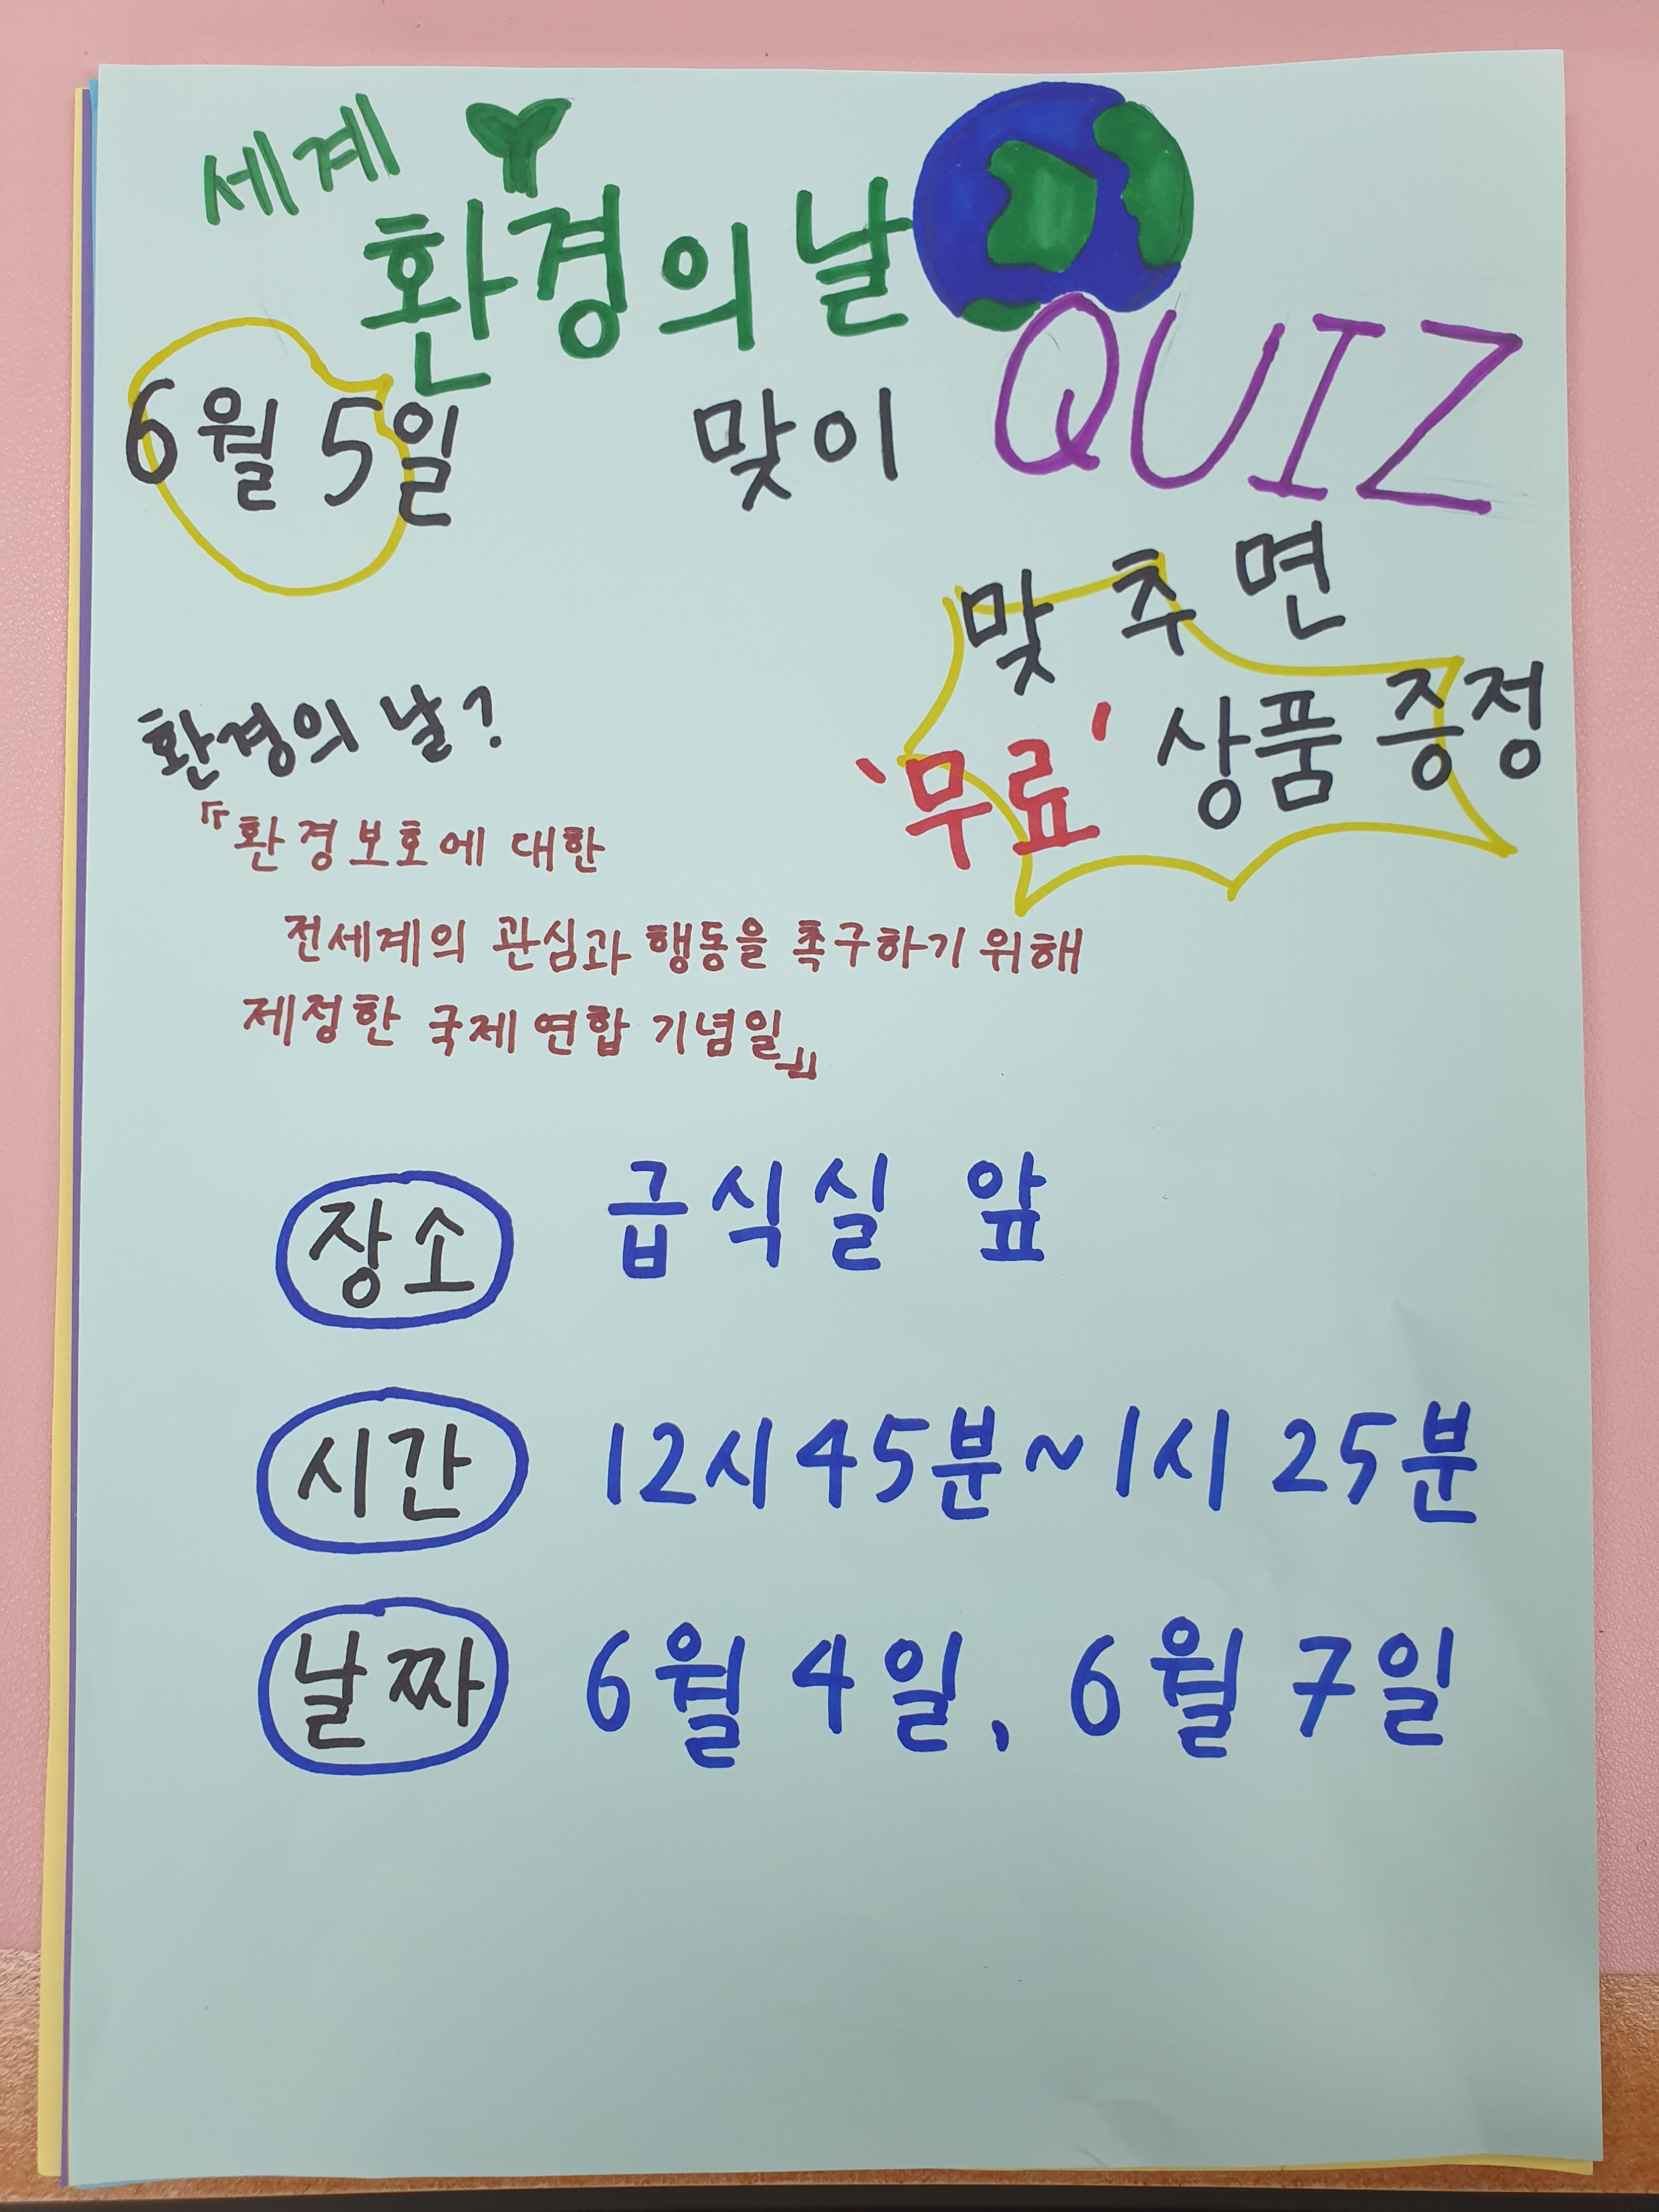 세계
환경의 날
6월 5일 맞이 QUIZ
맞추면
'무료' 상품 증정
환경의 날?
『환경보호에 대한
전세계의 관심과 행동을 촉구하기 위해
제정한 국제연합 기념일』
장소 급식실 앞
시간 12시 45분 ~ 1시 25분
날짜 6월 4일, 6월 7일